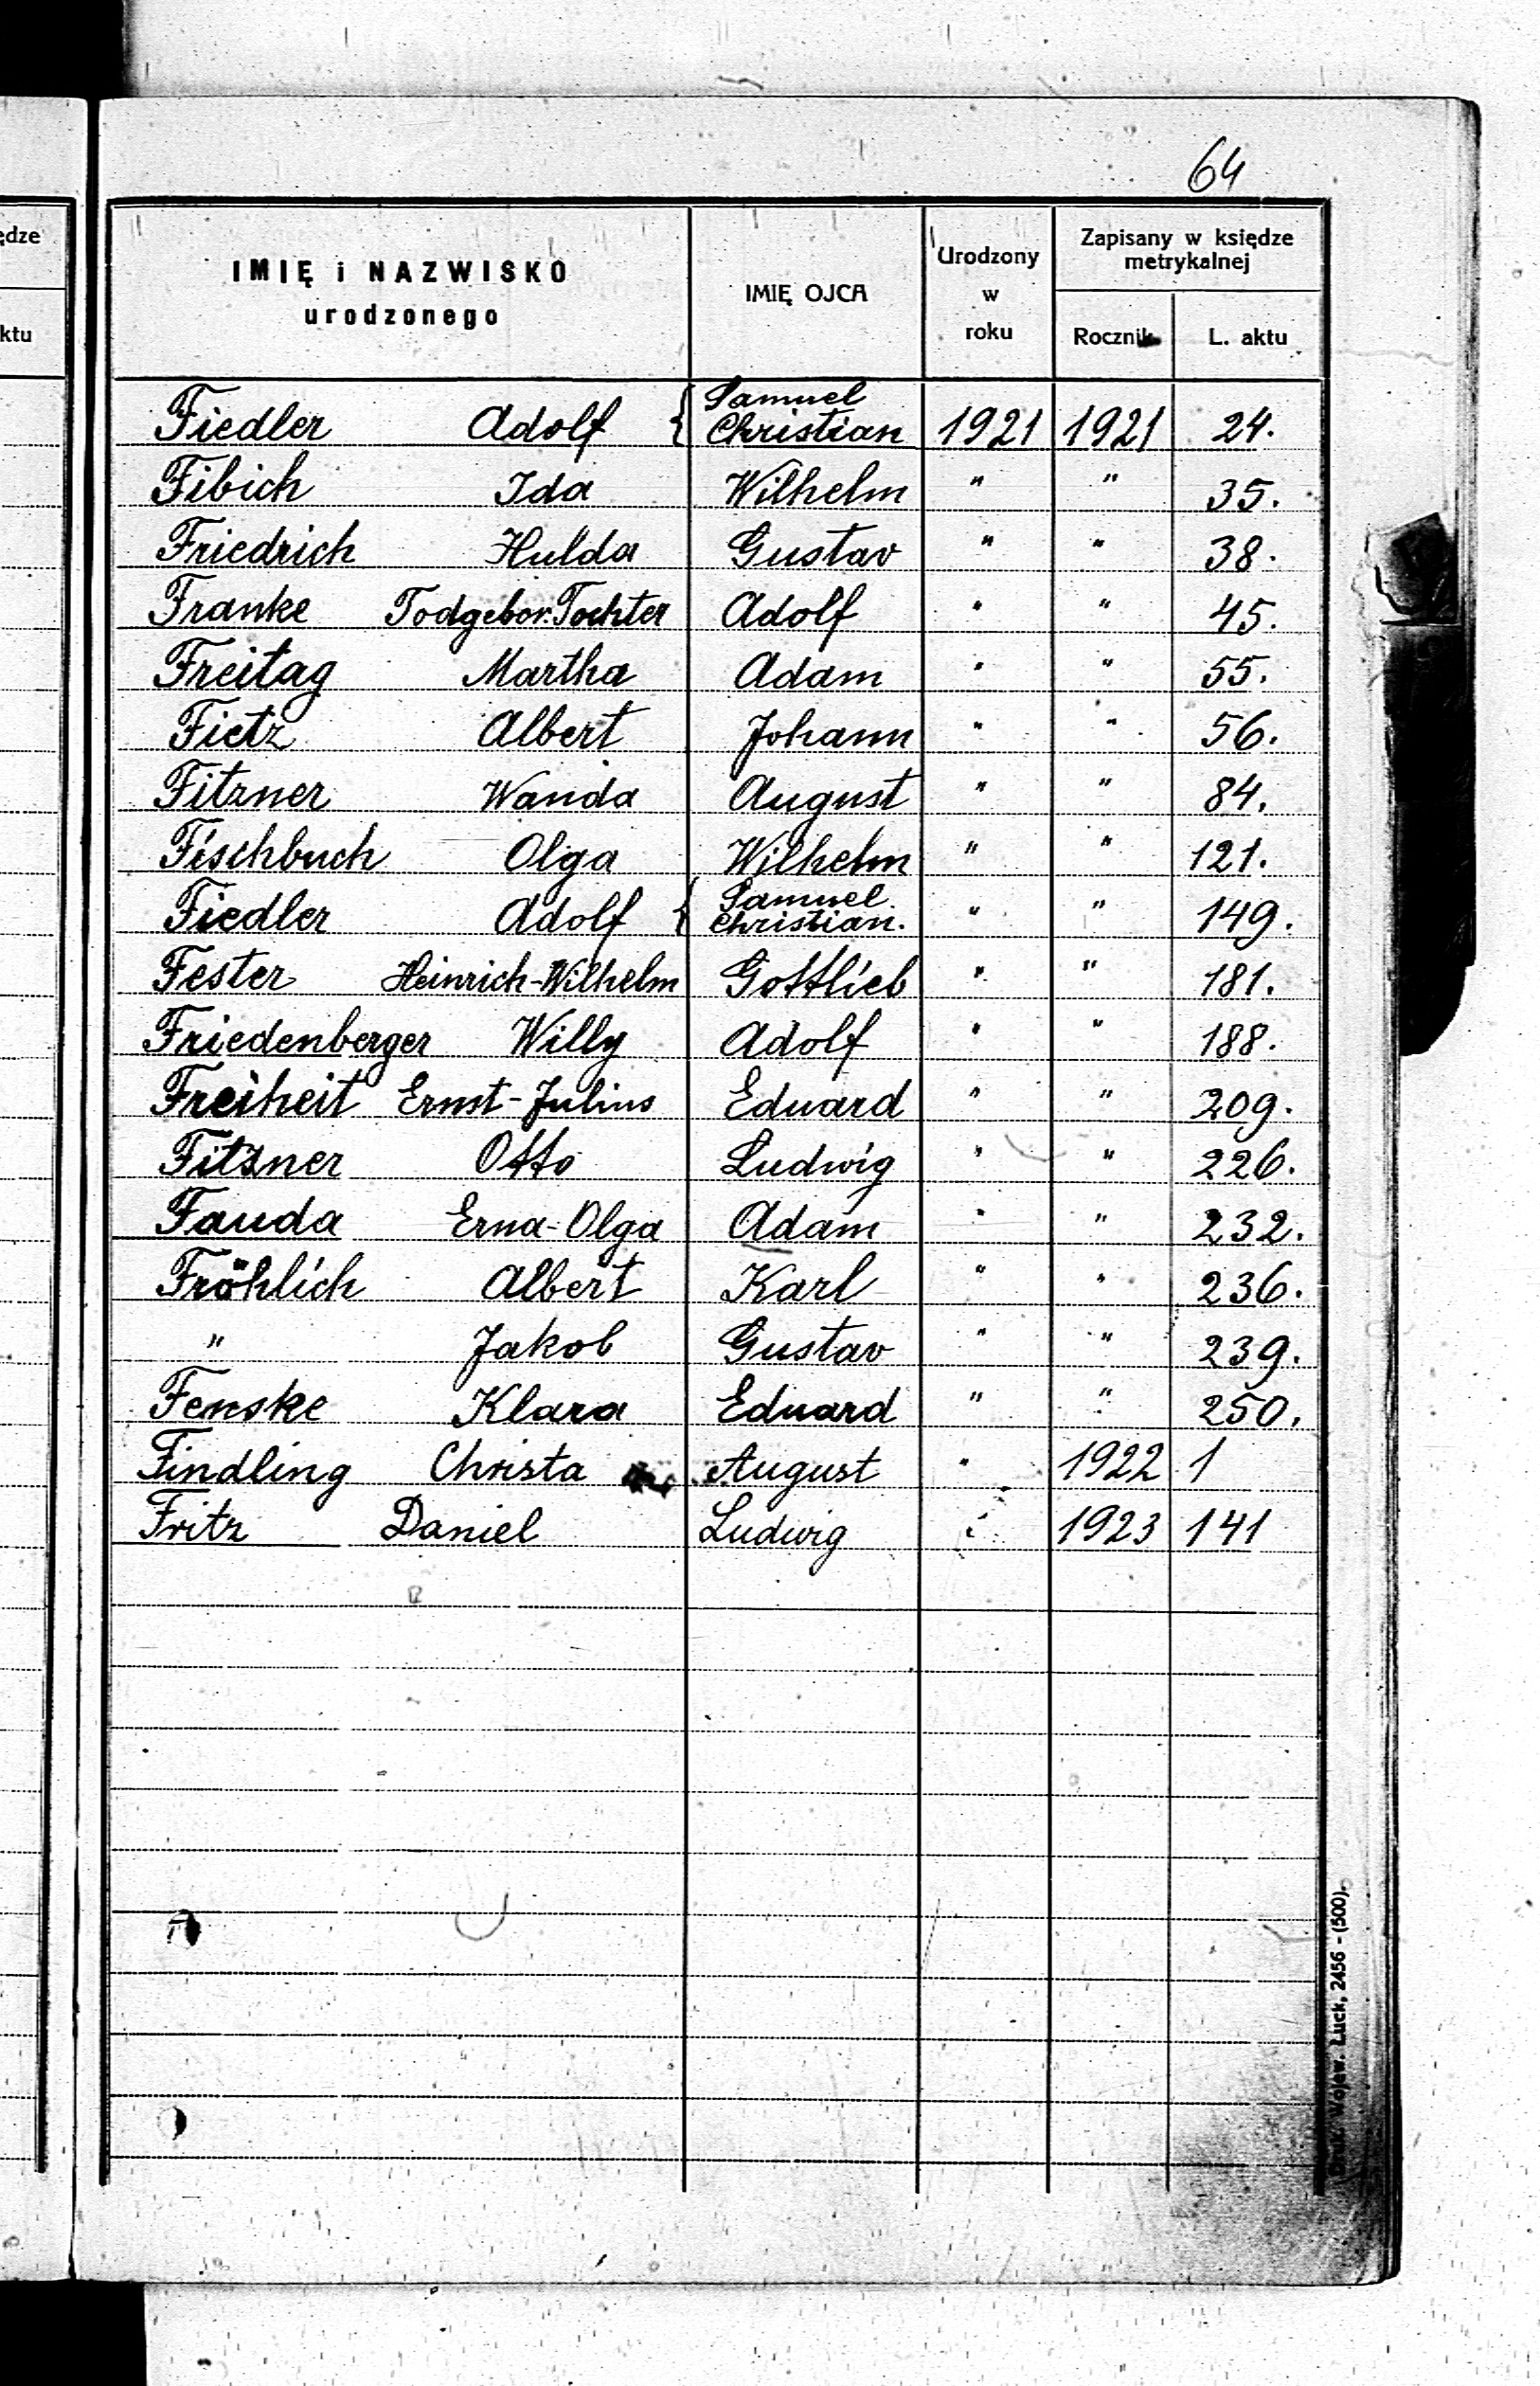 64
ędze
ktu
IMIĘ i NAZWISKO
urodzonego
IMIĘ OJCA
Urodzony
w
roku
Zapisany w księdze
metrykalnej
Rocznik
L. aktu
Fiedler Adolf { Samuel Christian 1921 1921 24.
Fibich Ida Wilhelm " " 35.
Friedrich Hulda Gustav " " 38.
Franke Todgebor. Tochter Adolf " " 45.
Freitag Martha Adam " " 55.
Fietz Albert Johann " " 56.
Fitzner Wanda August " " 84.
Fischbuch Olga Wilhelm " " 121.
Fiedler Adolf { Samuel Christian. " " 149.
Fester Heinrich-Wilhelm Gottlieb " " 181.
Friedenberger Willy Adolf " " 188.
Freiheit Ernst-Julius Eduard " " 209.
Fitzner Otto Ludwig " " 226.
Fauda Erna-Olga Adam " " 232.
Fröhlich Albert Karl " " 236.
" Jakob Gustav " " 239.
Fenske Klara Eduard " " 250.
Findling Christa August " 1922 1
Fritz Daniel Ludwig " 1923 141
Druk. Wojew. Łuck, 2456 - (500).